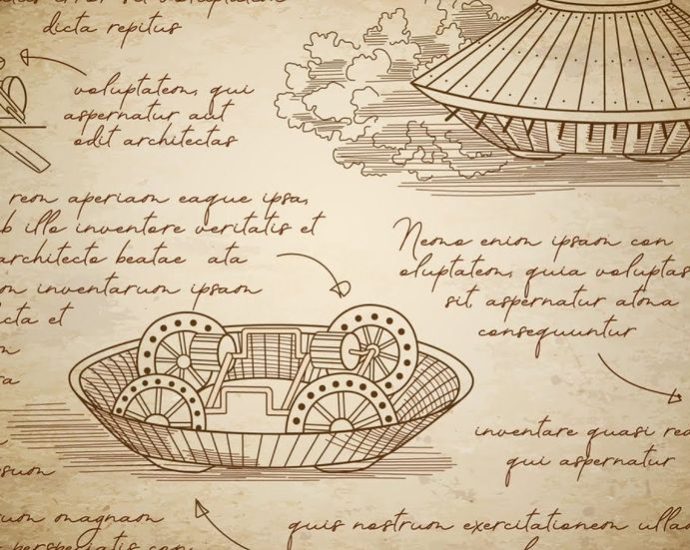 dicta repitus
voluptatem, qui
aspernatur aut
odit architectas
rem aperiam eaque ipsa,
b illo inventore veritatis et
architecto beatae ata
m inventarum ipsam
cta et
Nemo enim ipsam con
oluptatem, quia voluptas
sit aspernatur atma
consequuntur
inventare quasi rea
qui aspernatur
sum
um magnam
quis nostrum exercitationem ullam
perspeciatis con